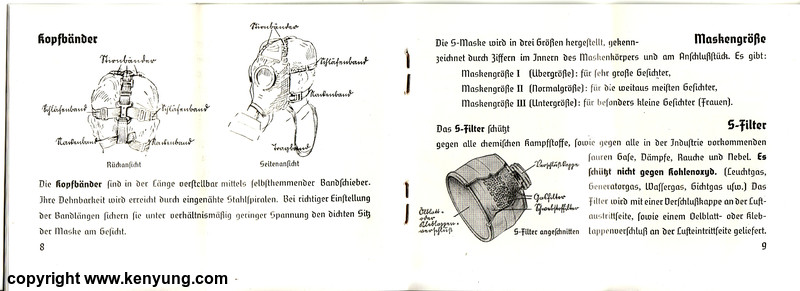 Kopfbänder
Stirnbänder
Schläfenband
Schläfenband
Nackenband
Nackenband
Rückansicht
Stirnbänder
Schläfenband
Nackenband
Tragband
Seitenansicht
Die Kopfbänder sind in der Länge verstellbar mittels selbsthemmender Bandschieber.
Ihre Dehnbarkeit wird erreicht durch eingenähte Stahlspiralen. Bei richtiger Einstellung
der Bandlängen sichern sie unter verhältnismäßig geringer Spannung den dichten Sitz
der Maske am Gesicht.
8
Maskengröße
Die S-Maske wird in drei Größen hergestellt, gekenn-
zeichnet durch Ziffern im Innern des Maskenkörpers und am Anschlußstück. Es gibt:
Maskengröße I (Übergröße): für sehr große Gesichter,
Maskengröße II (Normalgröße): für die weitaus meisten Gesichter,
Maskengröße III (Untergröße): für besonders kleine Gesichter (Frauen).
S-Filter
Das S-Filter schützt
gegen alle chemischen Kampfstoffe, sowie gegen alle in der Industrie vorkommenden
sauren Gase, Dämpfe, Rauche und Nebel. Es
schützt nicht gegen Kohlenoxyd. (Leuchtgas,
Generatorgas, Wassergas, Gichtgas usw.) Das
Filter wird mit einer Verschlußkappe an der Luft-
austrittseite, sowie einem Oelblatt- oder Kleb-
lappenverschluß an der Lufteintrittseite geliefert.
Verschlußkappe
Gasfilter
Schwebstoffilter
Ölblatt-
oder
Klebelappen-
verschluß
S-Filter angeschnitten
9
copyright www.kenyung.com